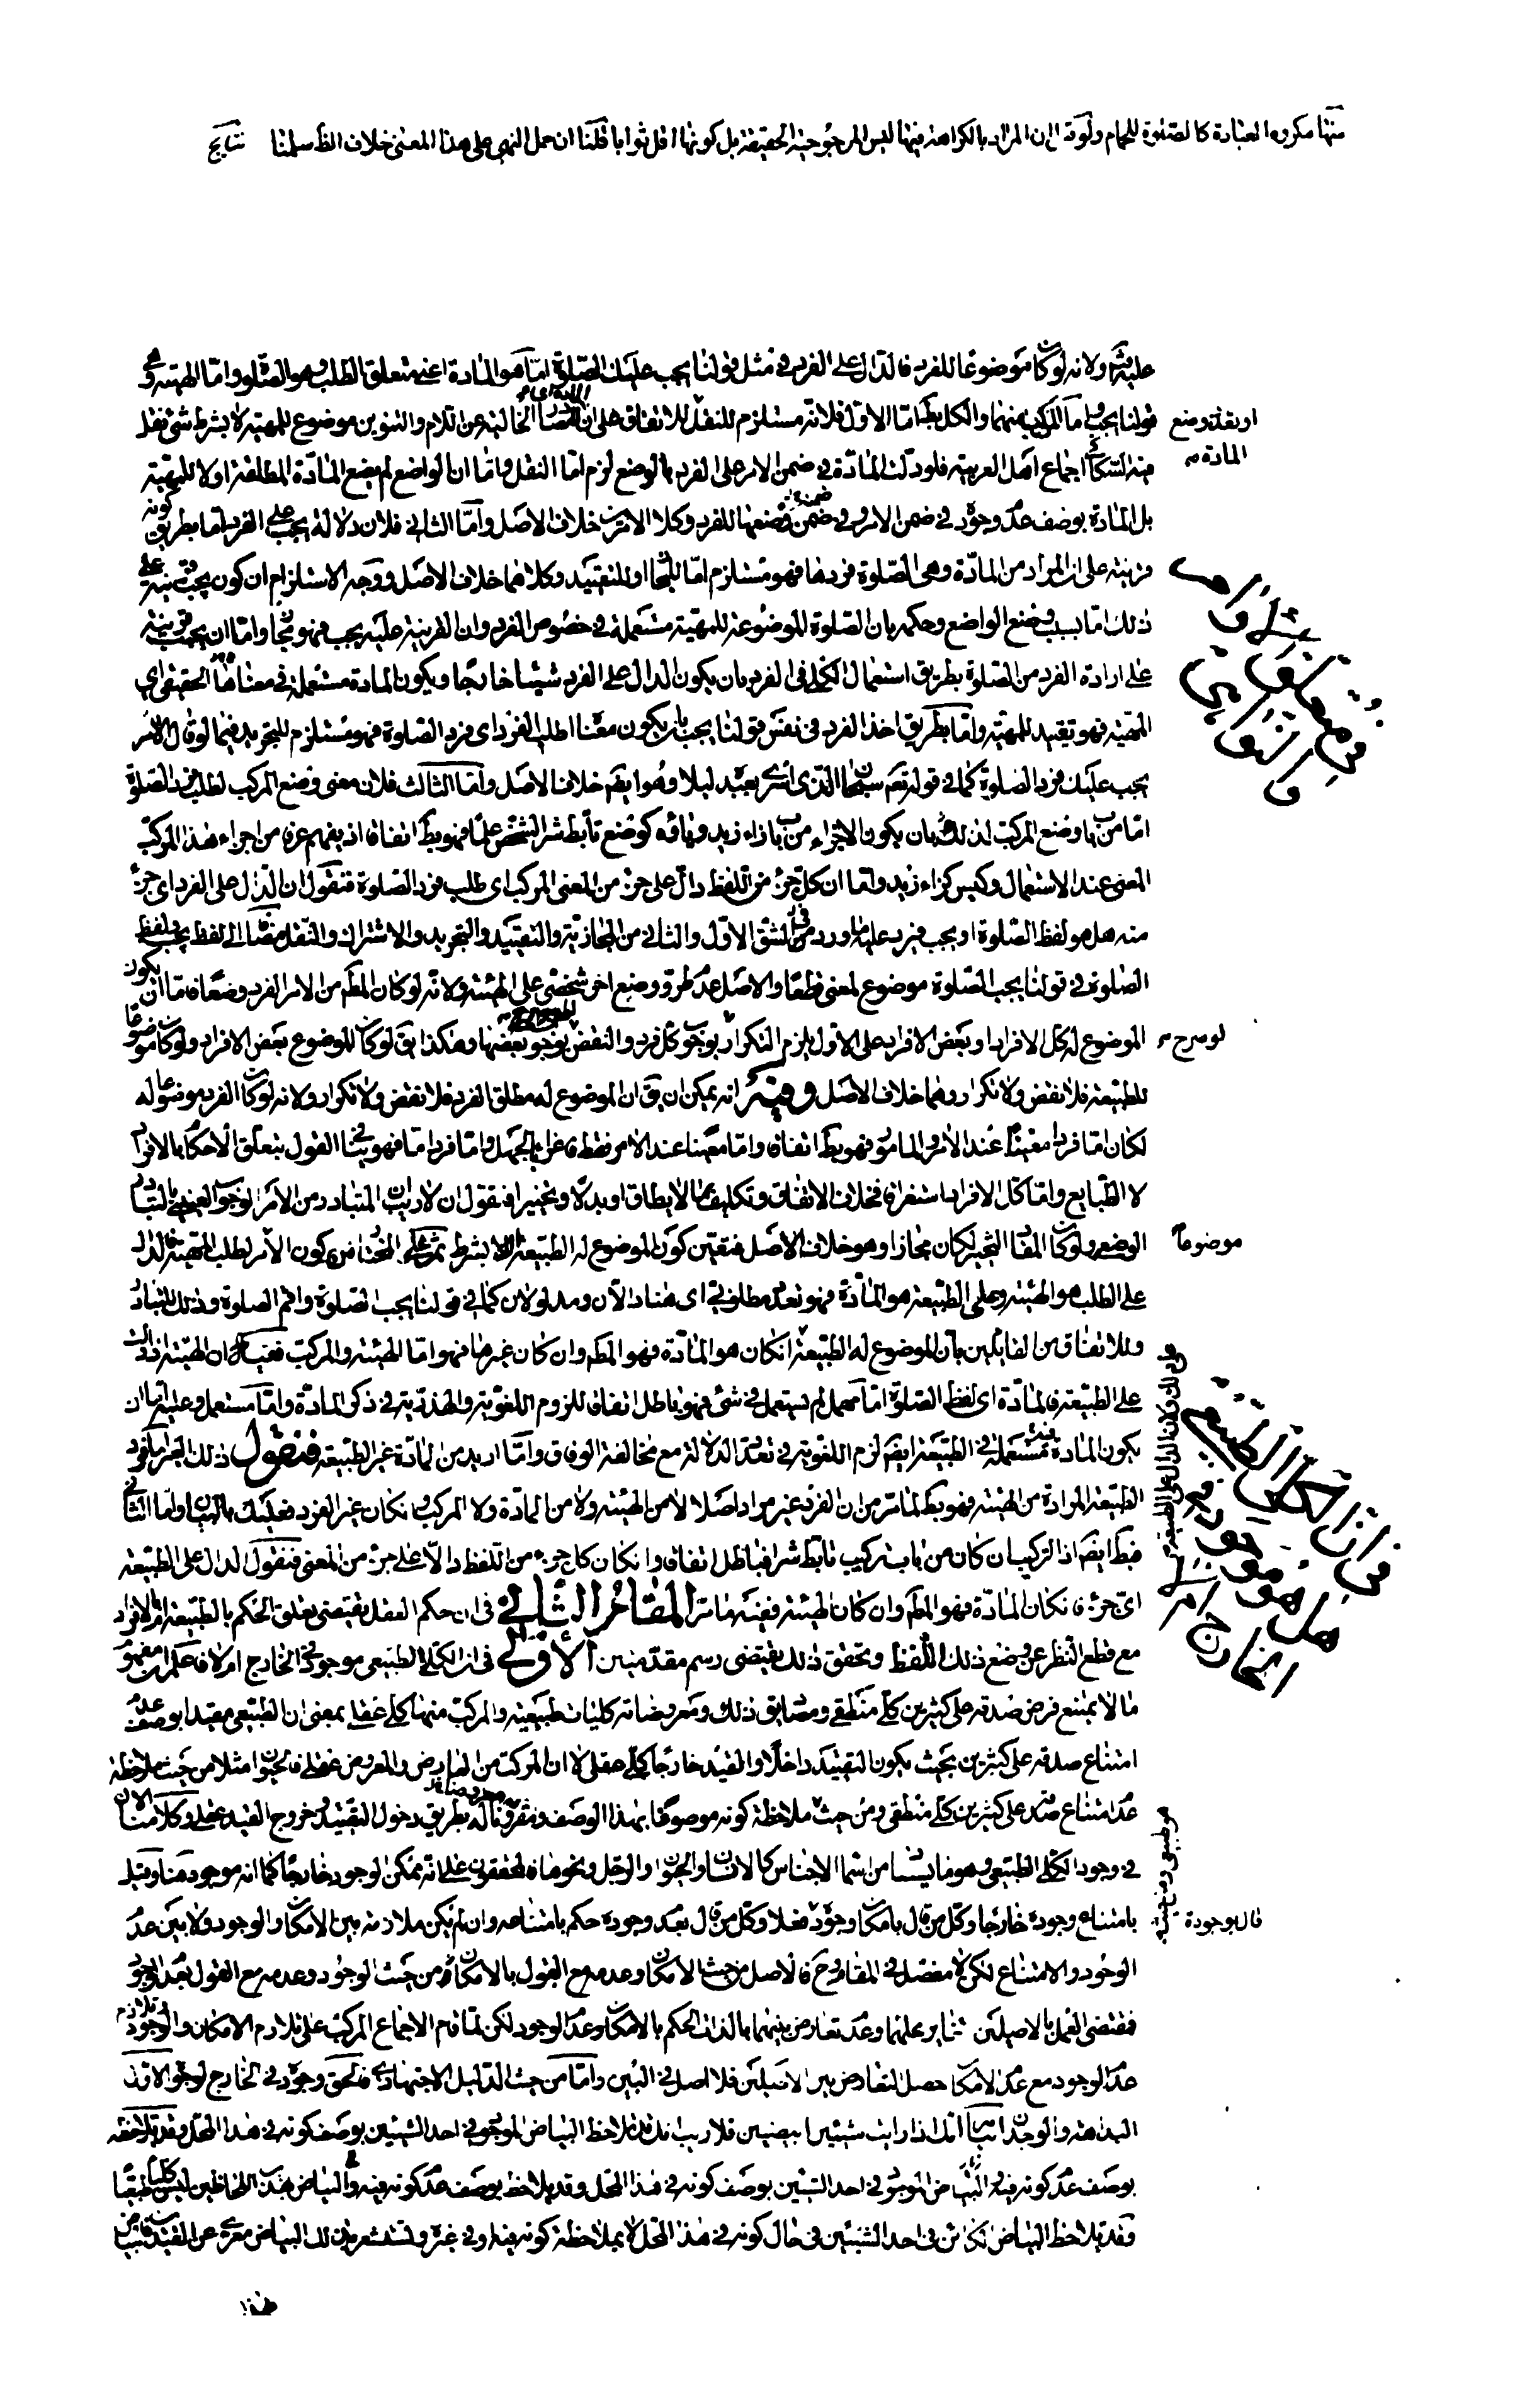 منها مكروه العبادة كالصلوة للحمام ولو قد ان المراد بالكراهة فيها ليس المرجوحية الحقيقة بل كونها اقل ثوابا قلنا ان حمل النهى على هذا المعنى خلاف الظ سلمنا نتايج
عليه ولانه لو كان موضوعا للفرد فالدال على الفرد فى مثل قولنا يجب عليك الصلوة اما هو المادة اعنى متعلق الطلب وهو الصلوة واما الهيئة وهى
قولنا يجب واما المركب منهما والكل بط اما الاول فلانه مستلزم للنقل للاتفاق على ان المصادر الخالية عن اللام والتنوين موضوع للمهية لا بشرط شئ نقل
فيه السكاكى اجماع اهل العربية فلو دلت المادة فى ضمن الامر على الفرد بالوضع لزم اما النقل واما ان الواضع لم يضع المادة المطلقة اولا للمهية
بل المادة بوصف عدم وجوده فى ضمن الامر وفى ضمن وضعها للفرد وكلا الامرين خلاف الاصل واما الثانى فلان دلالة يجب على الفرد اما بطريق كونه
قرينة على ان المراد من المادة وهى الصلوة فردها فهو مستلزم اما للمجاز او للتقييد وكلاهما خلاف الاصل ووجه الاستلزام ان كون يجب قرينة على
ذلك اما بسبب وضع الواضع وحكمه بان الصلوة الموضوعة للمهية مستعملة فى خصوص الفرد وان القرينة عليه يجب فهو مجاز واما ان يجب قرينة
على ارادة الفرد من الصلوة بطريق استعمال الكلى فى الفرد بان يكون الدال على الفرد شيئا خارجا ويكون المادة مستعملة فى معناها الحقيقى اى
المهية فهو تقييد للمهية واما بطريق اخذ الفرد فى نفس قولنا يجب بان يكون معنا اطلب الفرد اى فرد الصلوة فهو مستلزم للتجريد فيما لو قال الامر
يجب عليك فرد الصلوة كما فى قوله تعم سبحان الذى اسرى بعبده ليلا وهو ايضم خلاف الاصل واما الثالث فلان معنى وضع المركب لطلب فرد الصلوة
اما من باب وضع المركب لذلك بان يكون الاجزاء من باب ازاء زيد وياؤه كوضع تأبط شرا لشخص علما فهو بط اتفاقا اذ يفهم عرفا من اجزاء هذا المركب
المعنى عند الاستعمال وليس كزاء زيد واما ان كل جزء من اللفظ دال على جزء من المعنى المركب اى طلب فرد الصلوة فنقول ان الدال على الفرد اى جزء
منه هل هو لفظ الصلوة او يجب فيرد عليهما ما ورد فى الشق الاول والثانى من المجازية والتقييد والتجريد والاشتراك والنقل مضافا الى لفظ يجب ولفظ
الصلوة فى قولنا يجب الصلوة موضوع لمعنى قطعا والاصل عدم طرو وضع اخر شخصى على الهيئة ولانه لو كان المطم من الامر الفرد وضعا فاما ان يكون
الموضوع له كل الافراد او بعض الافراد على الاول يلزم التكرار بوجوب كل فرد والنقض بوجوب بعضها وهكذا يق لو كان الموضوع بعض الافراد ولو كان موضوعا
للطبيعة فلا نقض ولا تكرار وهما خلاف الاصل وفيه انه يمكن ان يق ان الموضوع له مطلق الفرد فلا نقض ولا تكرار ولانه لو كان الفرد موضوعا له
لكان اما فردا معينا عند الامر والمامور فهو بط اتفاقا واما معينا عند الامر فقط فاغراء بالجهل واما فردا ما فهو ينافى القول بتعلق الاحكام بالافراد
لا الطبايع واما كل الافراد استغراقا فخلاف الاتفاق وتكليف بما لا يطاق او بدلا وتخييرا فنقول ان لا ريب ان المتبادر من الامر الوجوب العينى بالتبادر
الوضعى ولو كان المفاد التخيير لكان مجازا وهو خلاف الاصل فتعين كون الموضوع له الطبيعة لا بشرط ثم على المختار من كون الامر لطلب المهية فالدال
على الطلب هو الهيئة وعلى الطبيعة هو المادة فهو تعدد مطلوبى اى هنا دالان ومدلولان كما فى قولنا يجب الصلوة واقم الصلوة وذلك للتبادر
وللاتفاق من القايلين بان الموضوع له الطبيعة ان كان هو المادة فهو المطم وان كان غيرها فهو اما الهيئة والمركب فعليه ان الهيئة ان دلت
على الطبيعة فالمادة اى لفظ الصلوة اما مهمل لم يستعمل فى شئ فهو باطل اتفاقا للزوم اللغوية والهذرية فى ذكر المادة واما مستعمل وعليه اما ان
يكون المادة مستعملة فى الطبيعة ايضم لزم اللغوية فى تعدد الدلالة مع مخالفة الوفاق واما اريد من المادة غير الطبيعة فنقول ذلك الغير اما فرد
الطبيعة المرادة من الهيئة فهو بط لما مر من ان الفرد غير مراد اصلا لا من الهيئة ولا من المادة ولا المركب وان كان غير الفرد فعليك بالبيان واما الثانى
فبط ايضم اذ التركيب ان كان من باب تركيب تابط شرا فباطل اتفاقا وان كان كل جزء من اللفظ دالا على جزء من المعنى فنقول الدال على الطبيعة
اى جزء فان كان المادة فهو المطم وان كان الهيئة ففيه ما مر المقام الثانى فى ان حكم العقل يقتضى تعلق الحكم بالطبيعة او بالافراد
مع قطع النظر عن وضع ذلك اللفظ وتحقق ذلك يقتضى رسم مقدمتين الاولى فى ان الكلى الطبيعى موجود فى الخارج ام لا فاعلم ان مفهوم
ما لا يمتنع فرض صدقه على كثيرين كلى منطقى ومصاديق ذلك ومعروضاته كليات طبيعية والمركب منهما كلى عقلى بمعنى ان الطبيعى مقيدا بوصف عدم
امتناع صدقه على كثيرين بحيث يكون التقييد داخلا والقيد خارجا كلى عقلى لا ان المركب من العارض والمعروض عقلى فالحيوان مثلا من حيث ملاحظة
عدم امتناع صدقه على كثيرين كلى منطقى ومن حيث ملاحظة كونه موصوفا بهذا الوصف ومعروضا له بطريق دخول التقييد وخروج القيد عقلى وكلامنا الان
فى وجود الكلى الطبيعى وهو ما يستفاد من اسماء الاجناس كالانسان والحيوان والرجل ونحوها فالمحققون على انه ممكن الوجود خارجا كما انه موجود هنا وقيل
بامتناع وجوده خارجا وكل من قال بامكان وجوده فعلا وكل من قال بعدم وجوده حكم بامتناعه وان لم يكن ملازمة بين الامكان والوجود ولا بين عدم
الوجود والامتناع لكن لا مفصل فى المقام وح فالاصل من حيث الامكان وعدمه مع القول بالامكان ومن حيث الوجود وعدمه مع القول بعدم الوجود
فمقتضى العمل بالاصلين بناء عليهما وعدم تعارض بينهما بالذات الحكم بالامكان وعدم الوجود لكن لما قام الاجماع المركب على تلازم الامكان والوجود وتلازم
عدم الوجود مع عدم الامكان حصل التعارض بين الاصلين فلا اصل فى البين واما من حيث الدليل الاجتهادى فالحق وجوده فى الخارج لوجوه الاول
البداهة والوجدان بيانه انك اذا رايت شيئين ابيضين فلا ريب انك تلاحظ البياض الموجود فى احد الشيئين بوصف كونه فى هذا المحل وقد تلاحظه
بوصف عدم كونه فيه البياض الموجود فى احد الشيئين بوصف كونه فى هذا المحل وقد يلاحظ بوصف عدم كونه فيه والبياض بهذين اللحاظين ليس كليا طبيعيا
وقد تلاحظ البياض الكائن فى احد الشيئين فى حال كونه فى هذا المحل لا بملاحظة كونه فيه او فى غيره ولتستشعر بان ذلك البياض معرى عن القيدين
او نقله وضع
المادة
لو صرح
موضوعا
قال بوجوده
فى متعلق الاوامر والنواهى
فى ان الكلى الطبيعى هل هو موجود فى الخارج ام لا